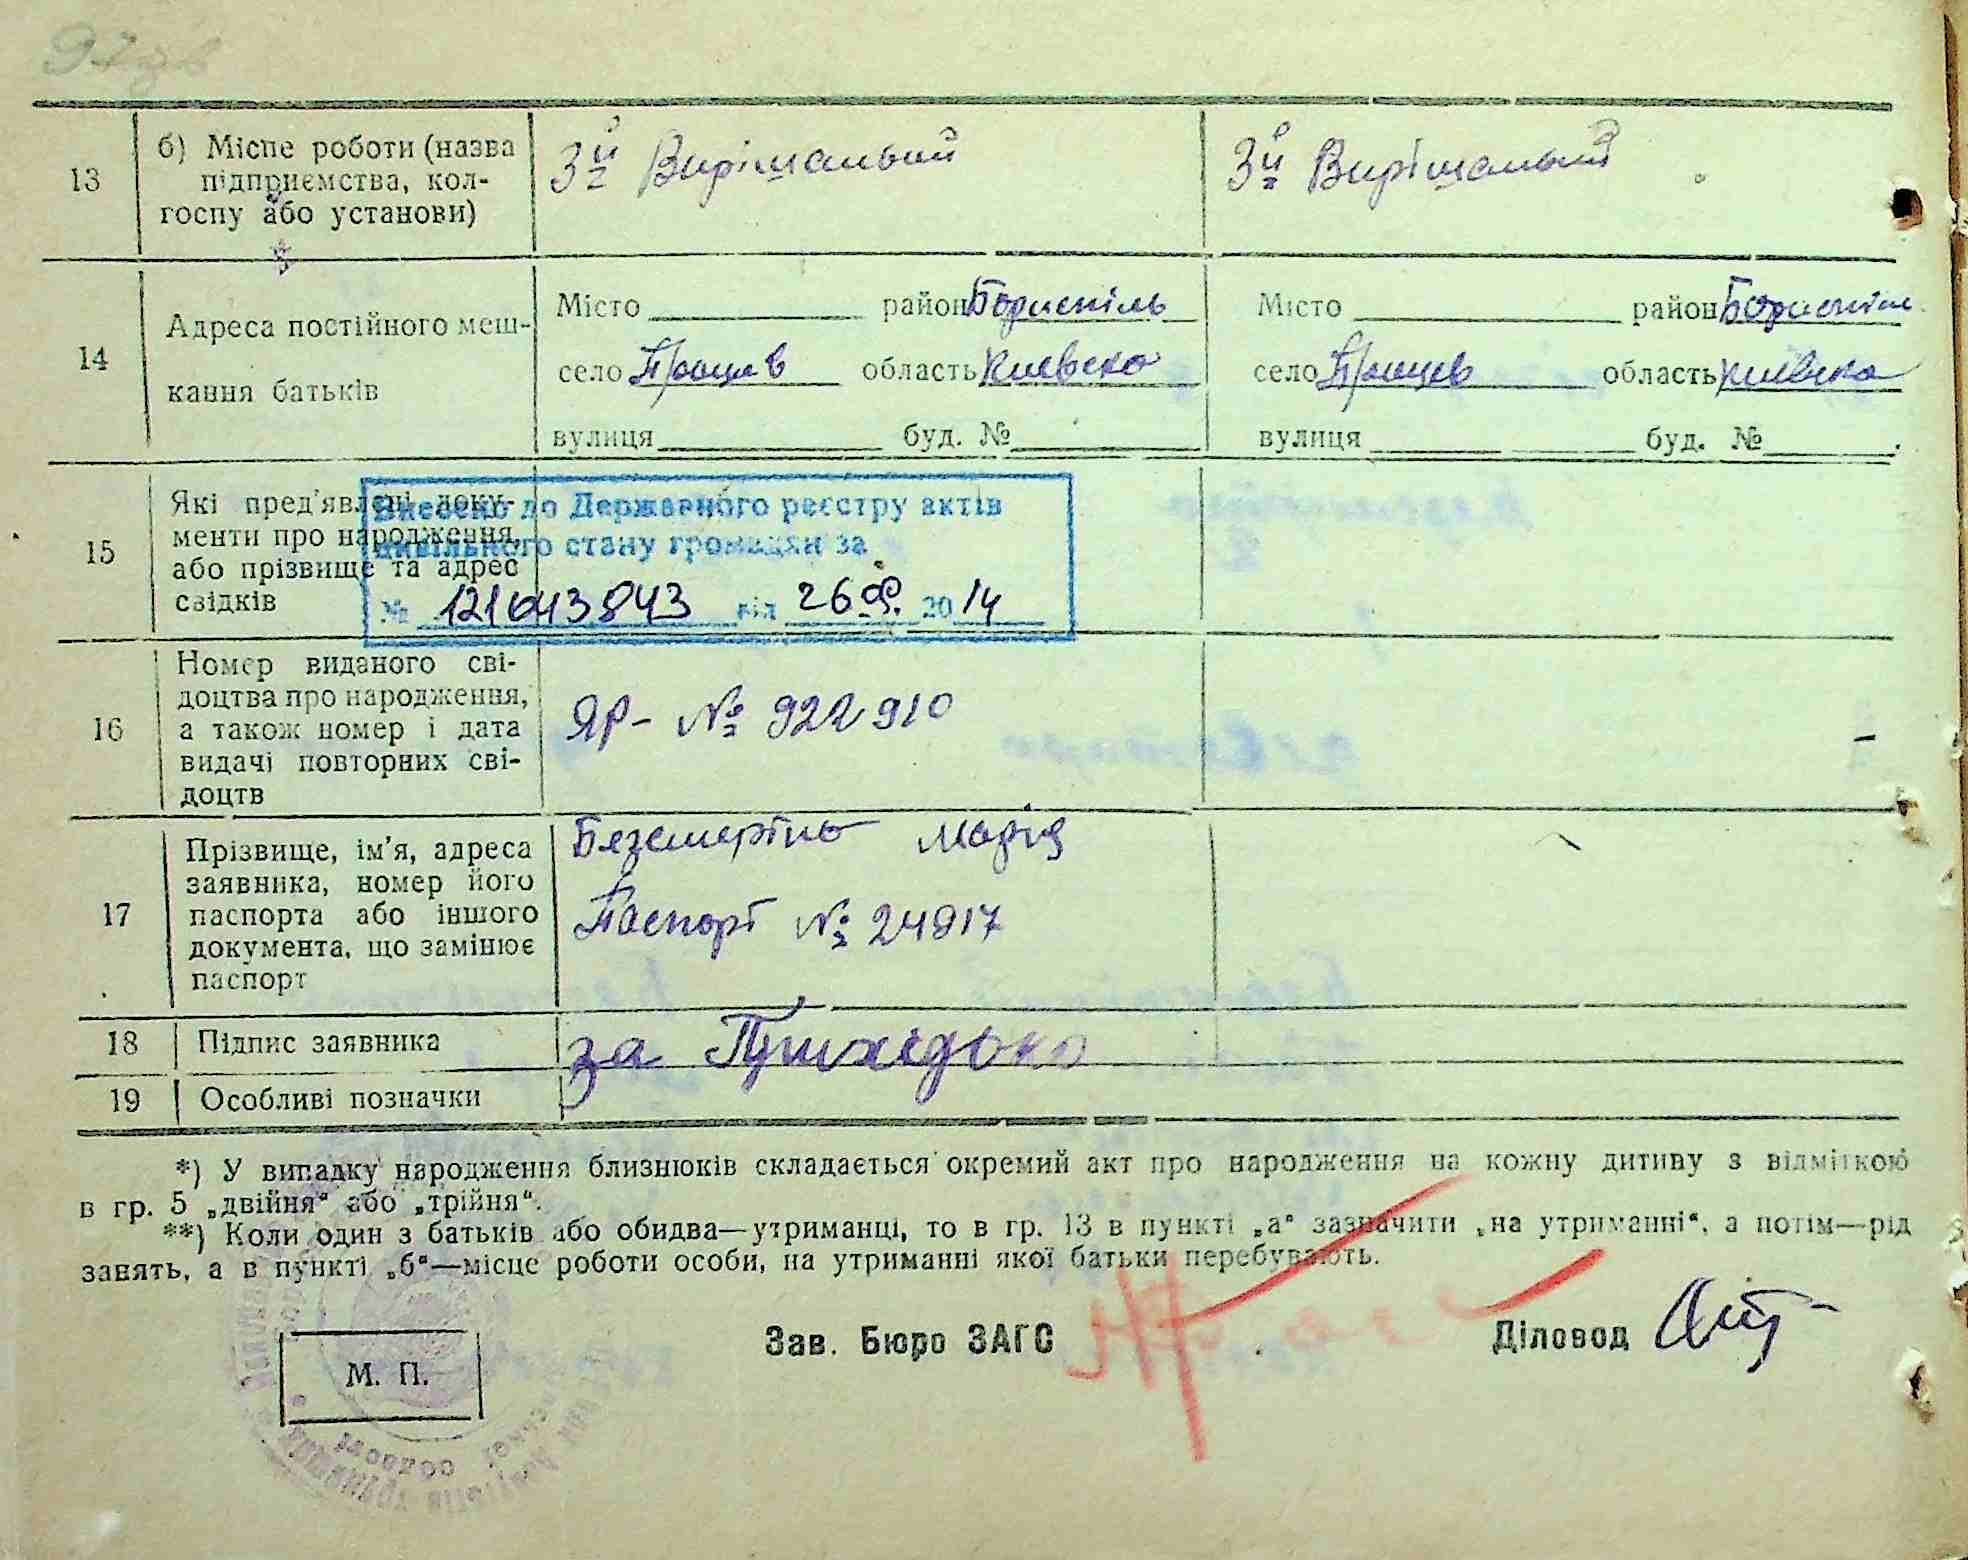 97 зв
13
б) Місце роботи (назва підприємства, колгоспу або установи)
3й Вирішальний
3й Вирішальний
14
Адреса постійного мешкання батьків
Місто район Бориспіль
село Процев область Киевска
вулиця буд. №
Місто район Бориспіль
село Процев область Киевска
вулиця буд. №
15
Які пред'явлені документи про народження, або прізвище та адрес свідків
Внесено до Державного реєстру актів
цивільного стану громадян за
№ 121643843 від 26 09. 2014
16
Номер виданого свідоцтва про народження, а також номер і дата видачі повторних свідоцтв
ЯР- № 922910
17
Прізвище, ім'я, адреса заявника, номер його паспорта або іншого документа, що замінює паспорт
Безсмертна Марія
Паспорт № 24917
18
Підпис заявника
за
19
Особливі позначки
*) У випадку народження близнюків складається окремий акт про народження на кожну дитину з відміткою
в гр. 5 „двійня“ або „трійня“.
**) Коли один з батьків або обидва—утриманці, то в гр. 13 в пункті „а“ зазначити „на утриманні“, а потім—рід
занять, а в пункті „б“—місце роботи особи, на утриманні якої батьки перебувають.
М. П.
Зав. Бюро ЗАГС
Діловод